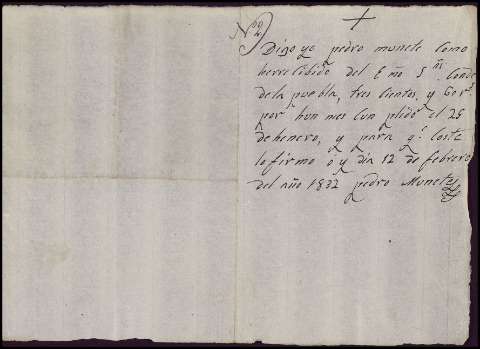 Nº 2
Digo yo pedro munete como
herrecibido del Eño Sñr. Conde
de la puebla, trescientos, y 60 rs.
por hun mes cunplido el 25
de henero, y para q.e coste
lo firmo oy dia 12 de febrero
del año 1832 pedro Munete